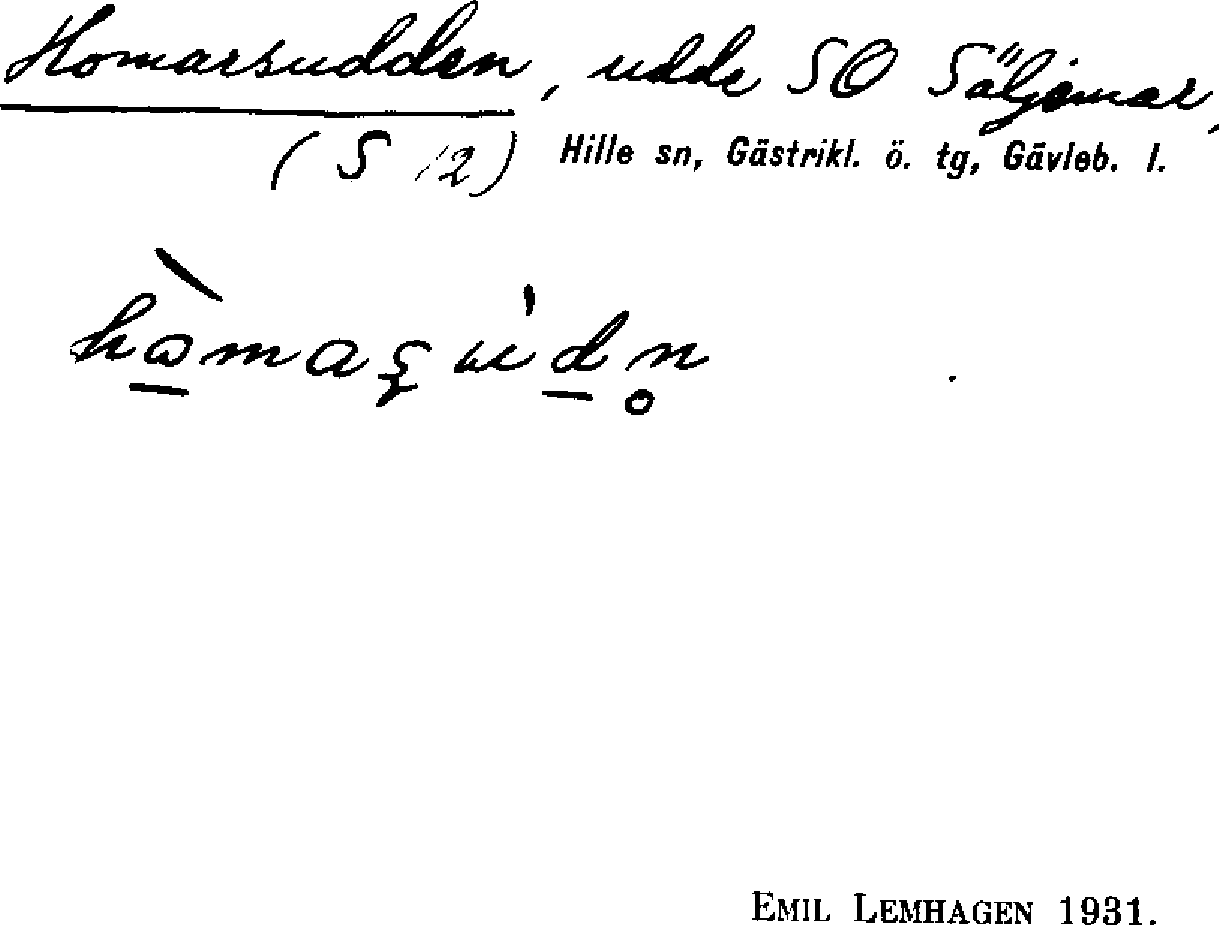 Homarsudden, udde SO Säljemar,
(S 12) Hille sn, Gästrikl. ö. tg, Gävleb. l.
EMIL LEMHAGEN 1931.